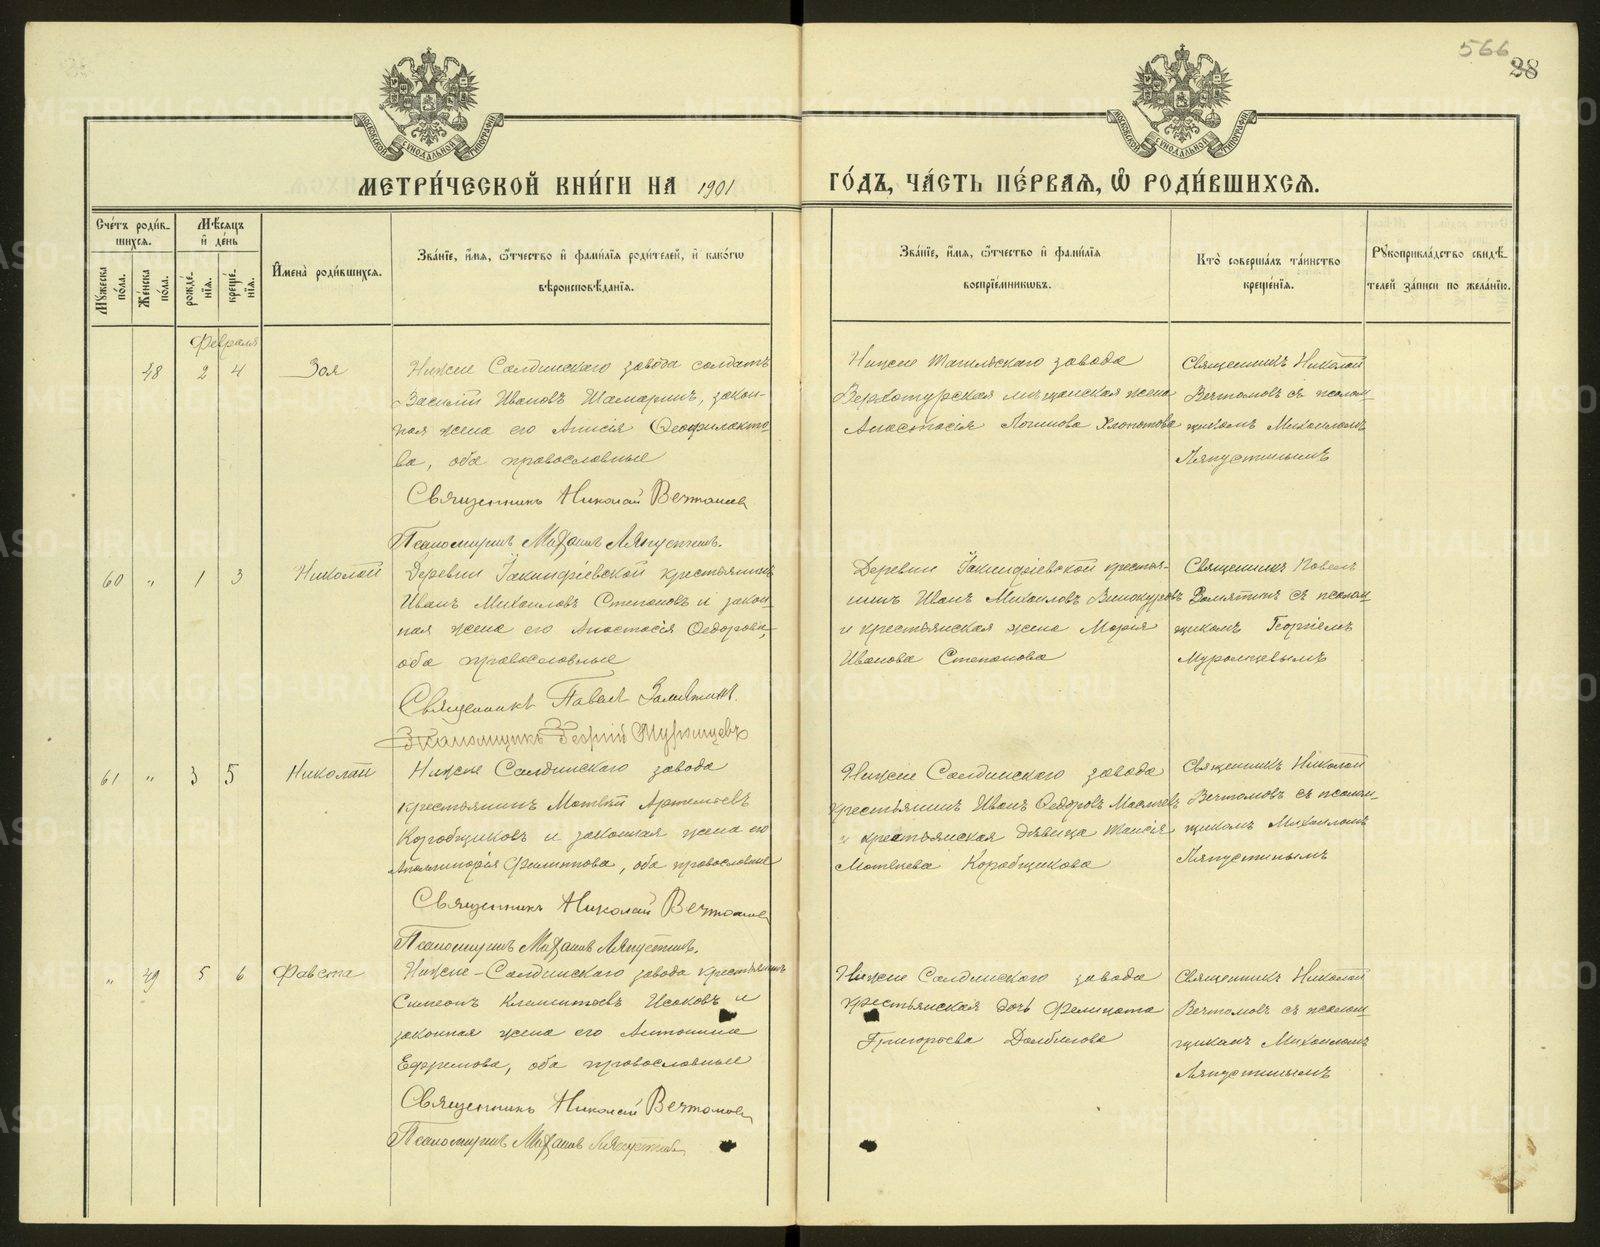 566
28
МОСКОВСКОЙ СѴНОДАЛЬНОЙ ТИПОГРАФІИ
МОСКОВСКОЙ СѴНОДАЛЬНОЙ ТИПОГРАФІИ
МЕТРИ́ЧЕСКОЙ КНИ́ГИ НА 1901 ГО́ДЪ, ЧА́СТЬ ПЕ́РВАѦ, Ѽ РОДИ́ВШИХСѦ.
Сче́тъ роди́в-
шихся.
Мѣ́сяцъ
и́ де́нь
Му́жеска по́ла.
Же́нска по́ла.
рожде́нїя.
креще́нїя.
И҆мена̀ роди́вшихся.
Зва́нїе, и҆́мя, ѻ҆́тчество и҆ фами́лїя роди́телей, и҆ како́гѡ
вѣроисповѣ́данїя.
Зва́нїе, и҆́мя, ѻ҆́тчество и҆ фами́лїя
воспрїе́мникѡвъ.
Кто̀ соверша́лъ та́инство
креще́нїя.
Рꙋкоприкла́дство свидѣ́-
телей за́писи по жела́нїю.
Февраля
48 2 4 Зоя
Нижне Салдинскаго завода солдатъ
Василій Ивановъ Шамаринъ, закон-
ная жена его Анисія Ѳеофилакто-
ва, оба православные
Священникъ Николай Вечтомовъ
Псаломщикъ Михаилъ Ляпустинъ.
Нижне Тагильскаго завода
Верхотурская мѣщанская жена
Анастасія Логинова Хлопотова
Священникъ Николай
Вечтомовъ съ псалом-
щикомъ Михаиломъ
Ляпустинымъ
60 „ 1 3 Николай
Деревни Іакинфіевской крестьянинъ
Иванъ Михаиловъ Степановъ и закон-
ная жена его Анастасія Ѳедорова,
оба православные
Священникъ Павелъ Замятинъ.
Псаломщикъ Георгій Муромцевъ
Деревни Іакинфіевской крестья-
нинъ Иванъ Михаиловъ Винокуровъ
и крестьянская жена Марія
Иванова Степанова
Священникъ Павелъ
Замятинъ съ псалом-
щикомъ Георгіемъ
Муромцевымъ
61 „ 3 5 Николай
Нижне Салдинскаго завода
крестьянинъ Матвѣй Артемьевъ
Коробщиковъ и законная жена его
Аполлинарія Филиппова, оба православные
Священникъ Николай Вечтомовъ
Псаломщикъ Михаилъ Ляпустинъ.
Нижне Салдинскаго завода
крестьянинъ Иванъ Ѳедоровъ
и крестьянская дѣвица Таисія
Матвѣева Коробщикова
Священникъ Николай
Вечтомовъ съ псалом-
щикомъ Михаиломъ
Ляпустинымъ
„ 49 5 6 Фавста
Нижне-Салдинскаго завода крестьянинъ
Симеонъ Климентьевъ Исаковъ и
законная жена его Антонина
Ефремова, оба православные
Священникъ Николай Вечтомовъ
Псаломщикъ Михаилъ Ляпустинъ
Нижне Салдинскаго завода
крестьянская дочь Фелицата
Григорьева Долбилова
Священникъ Николай
Вечтомовъ съ псалом-
щикомъ Михаиломъ
Ляпустинымъ
METRIKI.GASO-URAL.RU